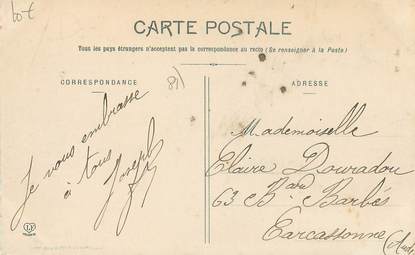 10 €
CARTE POSTALE
Tous les pays étrangers n'acceptent pas la correspondance au recto (Se renseigner à la Poste)
CORRESPONDANCE
Je vous embrasse
à tous
Joseph
ADRESSE
Mademoiselle
Claire Douradou
63 Bard Barbés
Carcassonne
(Aude